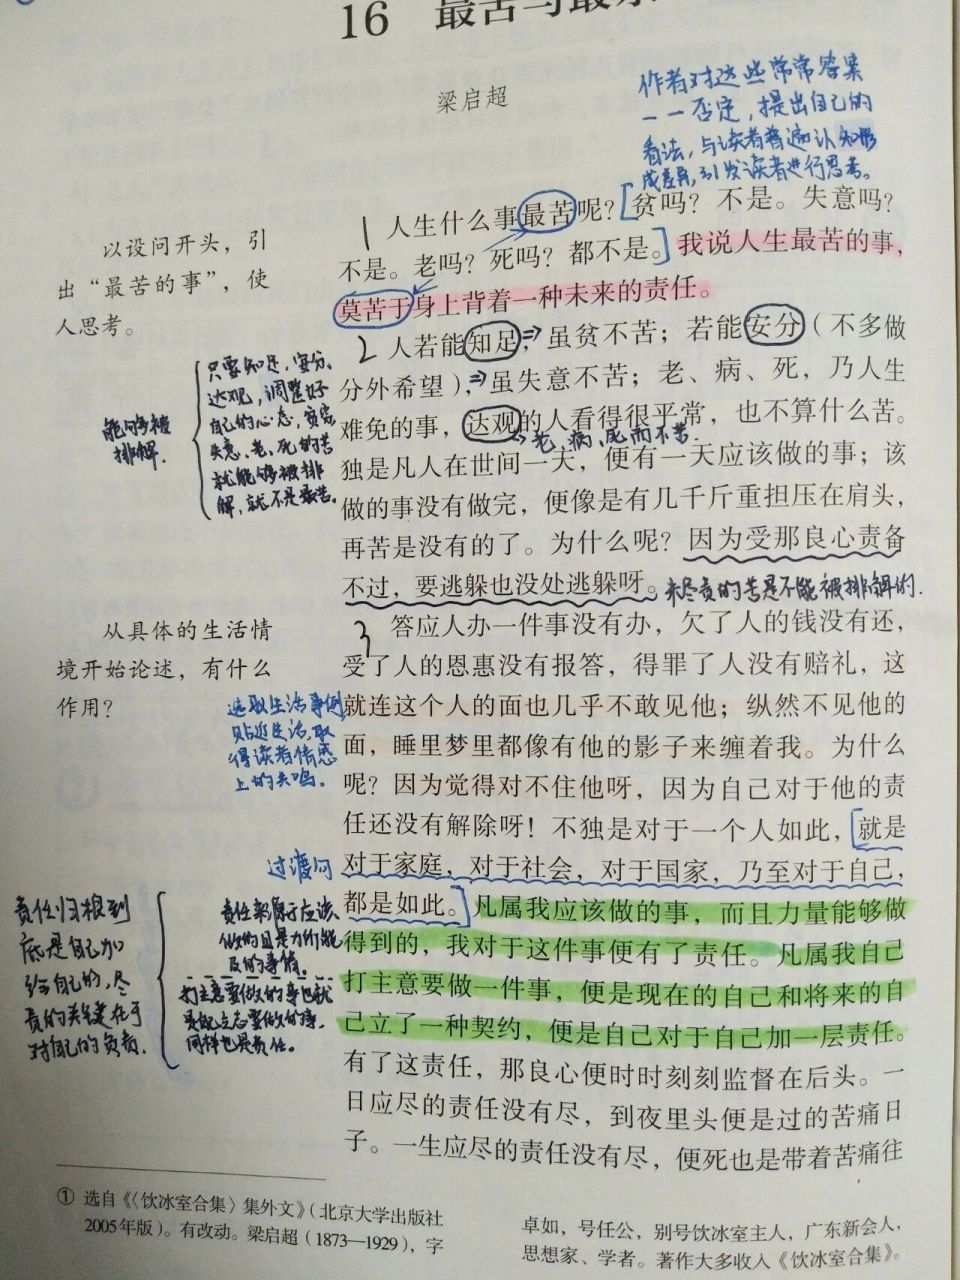 16 最苦与最乐
梁启超
作者对这些常常答案
一一否定，提出自己的
看法，与读者普遍认知形
成差异，引发读者进行思考。
以设问开头，引
出“最苦的事”，使
人思考。
1 人生什么事最苦呢？贫吗？不是。失意吗？
不是。老吗？死吗？都不是。我说人生最苦的事，
莫苦于身上背着一种未来的责任。
2 人若能知足，虽贫不苦；若能安分（不多做
分外希望），虽失意不苦；老、病、死，乃人生
难免的事，达观的人看得很平常，也不算什么苦。
老、病、死而不苦.
独是凡人在世间一天，便有一天应该做的事；该
做的事没有做完，便像是有几千斤重担压在肩头，
再苦是没有的了。为什么呢？因为受那良心责备
不过，要逃躲也没处逃躲呀。
未尽责的苦是不能被排解的.
能够被
排解.
只要知足，安分、
达观，调整好
自己的心态，贫穷
失意、老、死的苦
就能够被排
解，就不是最苦。
从具体的生活情
境开始论述，有什么
作用？
选取生活事例
贴近生活，取
得读者情感
上的共鸣。
3 答应人办一件事没有办，欠了人的钱没有还，
受了人的恩惠没有报答，得罪了人没有赔礼，这
就连这个人的面也几乎不敢见他；纵然不见他的
面，睡里梦里都像有他的影子来缠着我。为什么
呢？因为觉得对不住他呀，因为自己对于他的责
任还没有解除呀！不独是对于一个人如此，就是
对于家庭，对于社会，对于国家，乃至对于自己，
都是如此。凡属我应该做的事，而且力量能够做
得到的，我对于这件事便有了责任。凡属我自己
打主意要做一件事，便是现在的自己和将来的自
己立了一种契约，便是自己对于自己加一层责任。
有了这责任，那良心便时时刻刻监督在后头。一
日应尽的责任没有尽，到夜里头便是过的苦痛日
子。一生应尽的责任没有尽，便死也是带着苦痛往
过渡句
责任归根到
底是自己加
给自己的，尽
责的关键在于
对自己的负责.
责任都属于应该
做的且是力所能
及的事情。
打主意要做的事也就
是自己立志要做的事，
同样也是责任。
① 选自《〈饮冰室合集〉集外文》（北京大学出版社
2005年版）。有改动。梁启超（1873—1929），字
卓如，号任公，别号饮冰室主人，广东新会人，
思想家、学者。著作大多收入《饮冰室合集》。